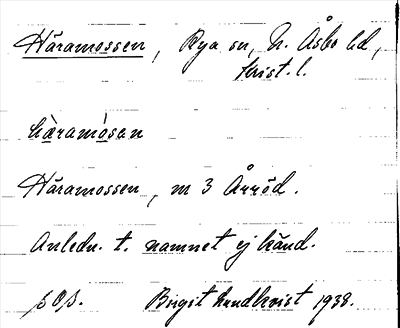 Häramossen, Rya sn, N. Åsbo hd,
Krist. l.
hæ̀ramósan
Häramossen, m 3 Årröd.
Anledn. t. namnet ej känd.
Birgit Lundkvist 1938.